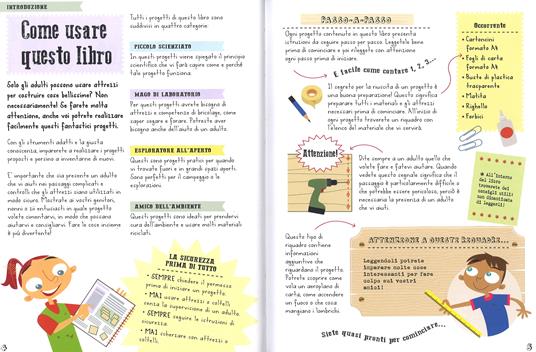 INTRODUZIONE
Come usare
questo libro
Solo gli adulti possono usare attrezzi
per costruire cose bellissime? Non
necessariamente! Se farete molta
attenzione, anche voi potrete realizzare
facilmente questi fantastici progetti.
Con gli strumenti adatti e la giusta
conoscenza, imparerete a realizzare i progetti
proposti e persino a inventarne di nuovi.
E' importante che sia presente un adulto
che vi aiuti nei passaggi complicati e
controlli che gli attrezzi siano utilizzati in
modo sicuro. Mostrate ai vostri genitori,
nonni o zii entusiasti in quale progetto
volete cimentarvi, in modo che possano
aiutarvi e consigliarvi. Fare le cose insieme
è più divertente!
Tutti i progetti di questo libro sono
suddivisi in quattro categorie:
PICCOLO SCIENZIATO
In questi progetti viene spiegato il principio
scientifico che vi farà capire come e perché
tale progetto funziona.
MAGO DI LABORATORIO
Per questi progetti avrete bisogno di
attrezzi e competenze di bricolage, come
saper segare e forare. Potreste aver
bisogno anche dell'aiuto di un adulto.
ESPLORATORE ALL'APERTO
Questi sono progetti pratici per quando
vi trovate fuori e in grandi spazi aperti.
Sono perfetti per il campeggio e le
esplorazioni.
AMICO DELL'AMBIENTE
Questi progetti sono ideali per prendervi
cura dell'ambiente o usare molti materiali
riciclati.
LA SICUREZZA
PRIMA DI TUTTO
• SEMPRE chiedere il permesso
prima di iniziare un progetto.
• MAI usare attrezzi o coltelli
senza la supervisione di un adulto.
• SEMPRE seguire le istruzioni di
sicurezza.
• MAI scherzare con attrezzi o
coltelli.
PASSO-A-PASSO
Ogni progetto contenuto in questo libro presenta
istruzioni da seguire passo per passo. Leggetele bene
prima di cominciare e poi rileggete con attenzione
ogni passo prima di iniziare.
È facile come contare 1, 2, 3...
Il segreto per la riuscita di un progetto è
una buona preparazione! Questo significa
preparare tutti i materiali e gli attrezzi
necessari prima di cominciare. All'inizio di
ogni progetto troverete un riquadro con
l'elenco dei materiali che vi serviranno.
Occorrente
• Cartoncini
formato A4
• Fogli di carta
formato A4
• Buste di plastica
trasparente
• Matita
• Righello
• Forbici
Attenzione!
Dite sempre a un adulto quello che
volete fare e fatevi aiutare. Quando
vedete questo segnale significa che il
passaggio è particolarmente difficile e
che potrebbe essere pericoloso, perciò è
necessaria la presenza di un adulto
che vi aiuti.
All'interno
del libro
troverete dei
consigli utili:
non dimenticate
di leggerli!
Questo tipo di
riquadro contiene
informazioni
aggiuntive che
riguardano il progetto.
Potrete scoprire come
vola un aeroplano di
carta, come accendere
un fuoco o che cosa
mangiano i lombrichi.
ATTENZIONE A QUESTI RIQUADRI...
Leggendoli potrete
imparare molte cose
interessanti per fare
colpo sui vostri
amici!
Siete quasi pronti per cominciare...